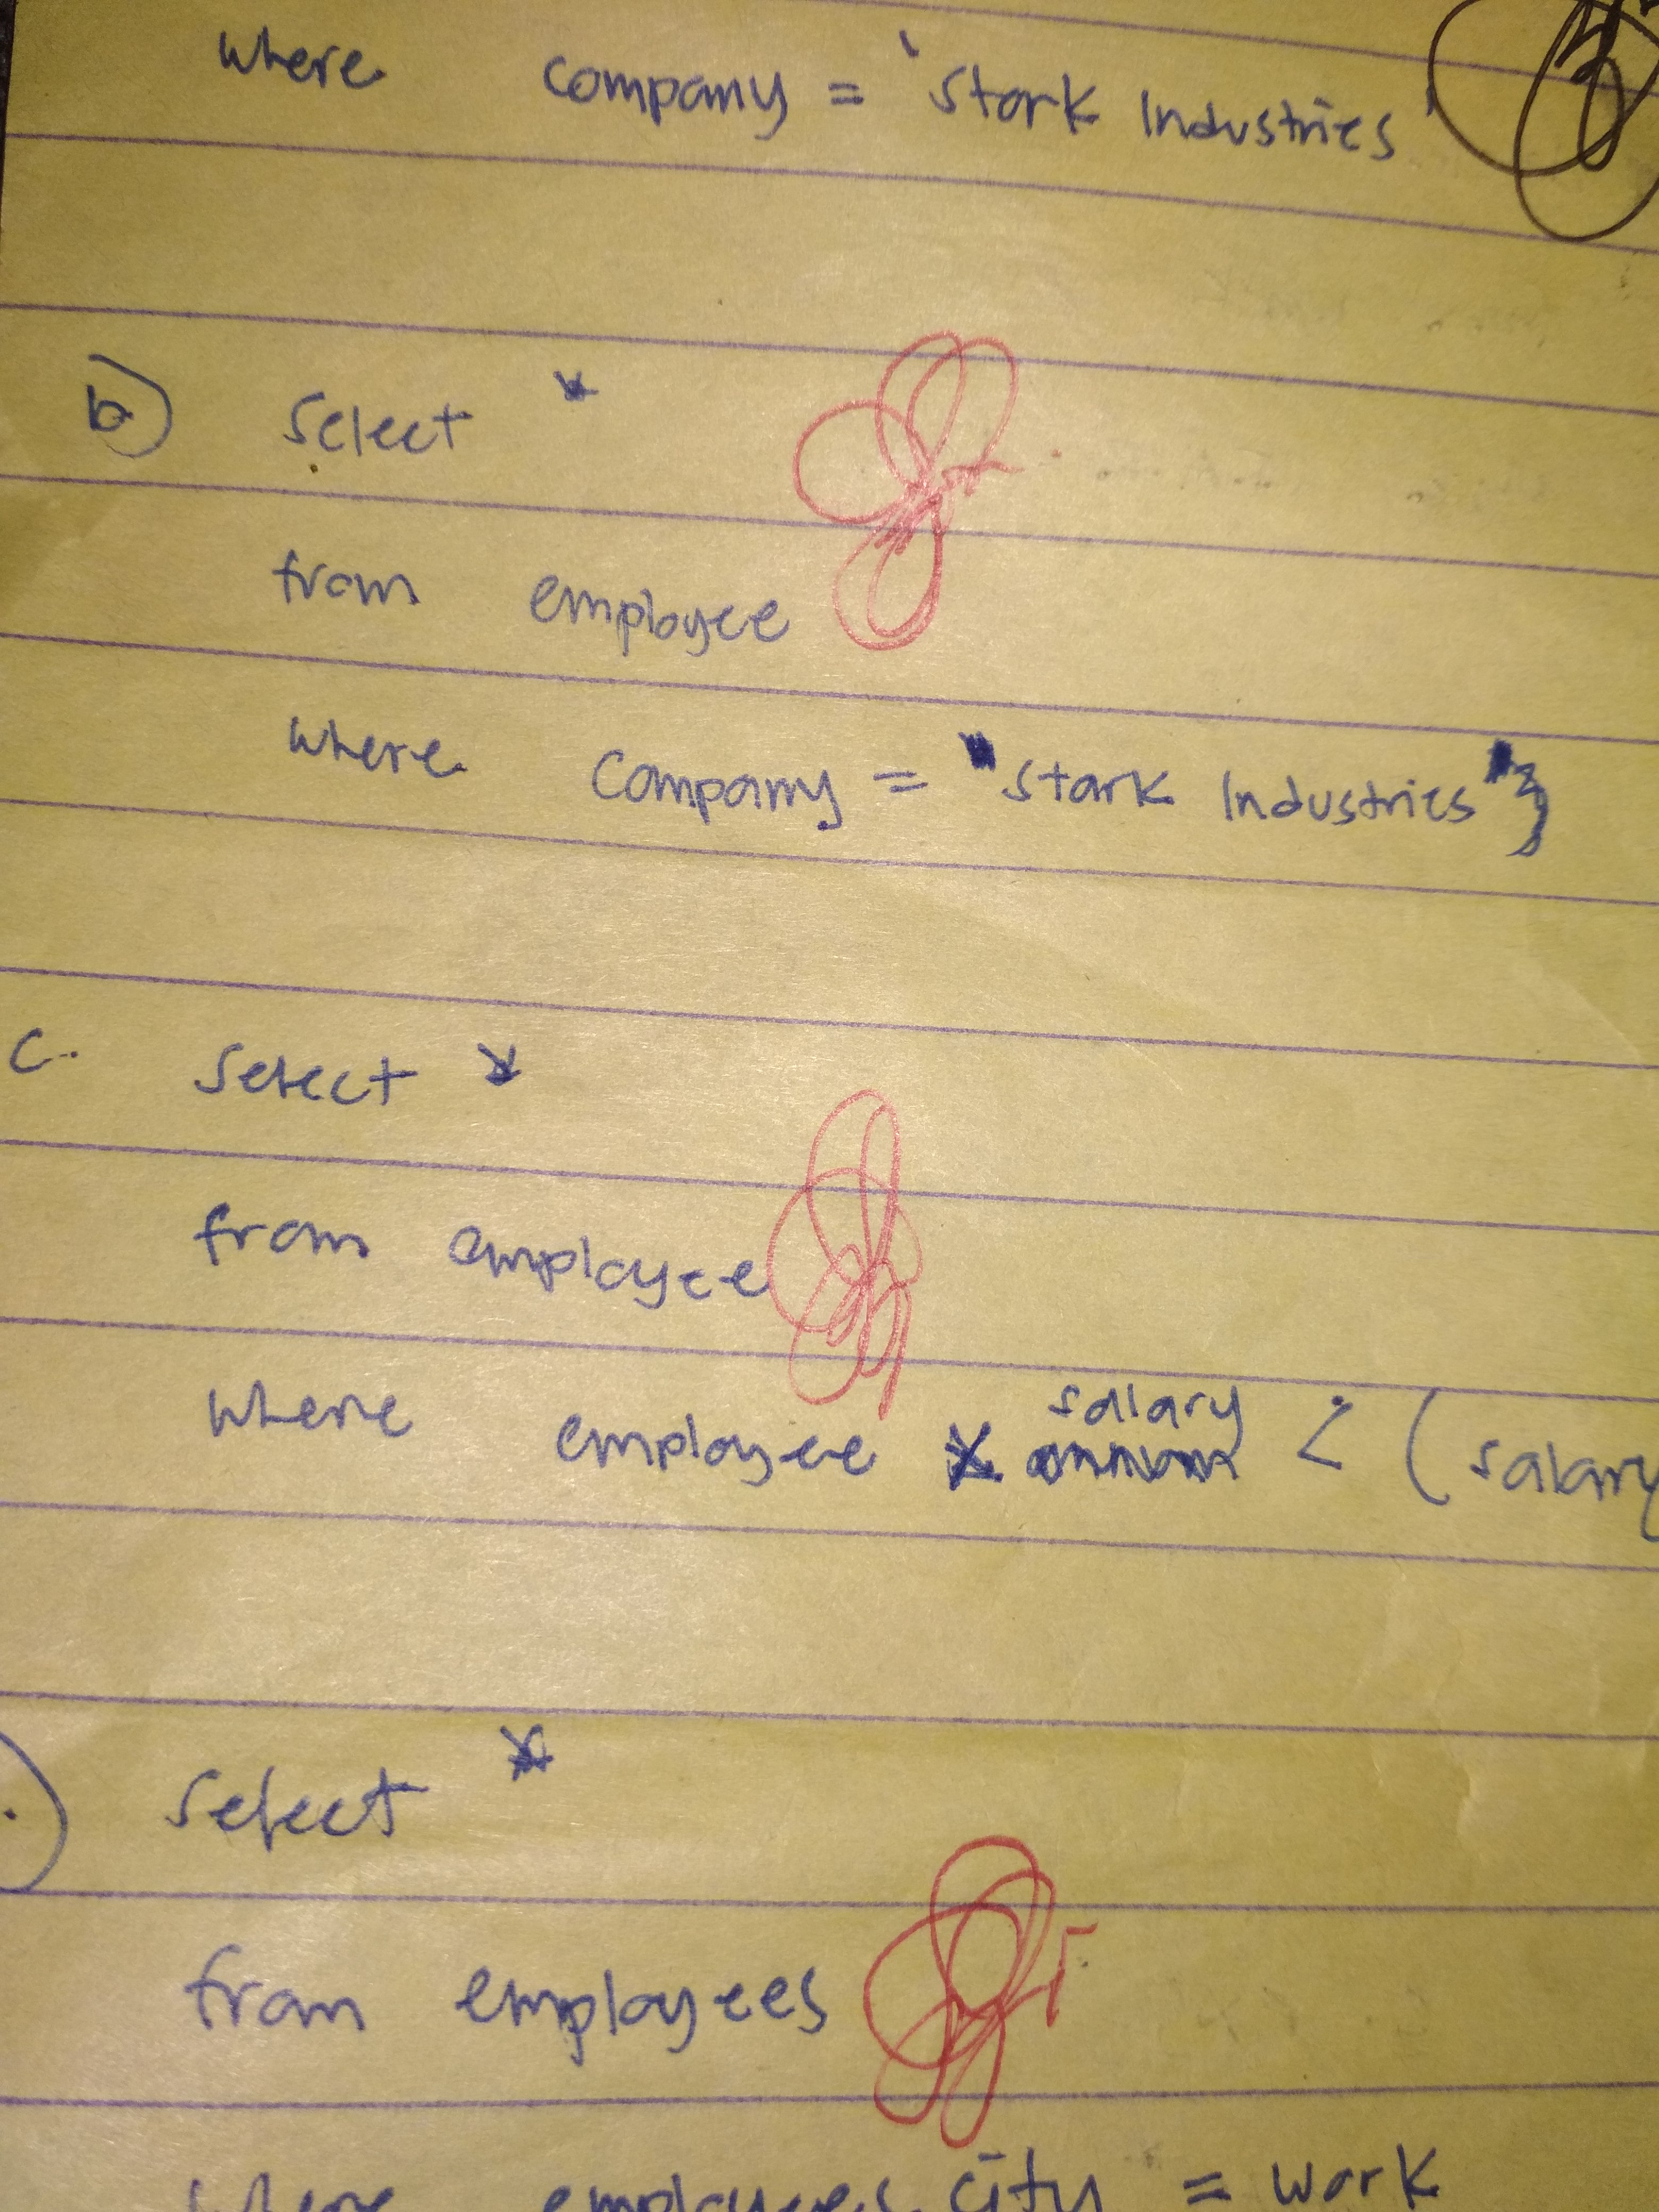 where company = 'Stark Industries'
b) Select *
from employee
where company = "Stark Industries"
c. Select *
from employee
where employee salary < (salary
.) Select *
from employees
where employees.city = work